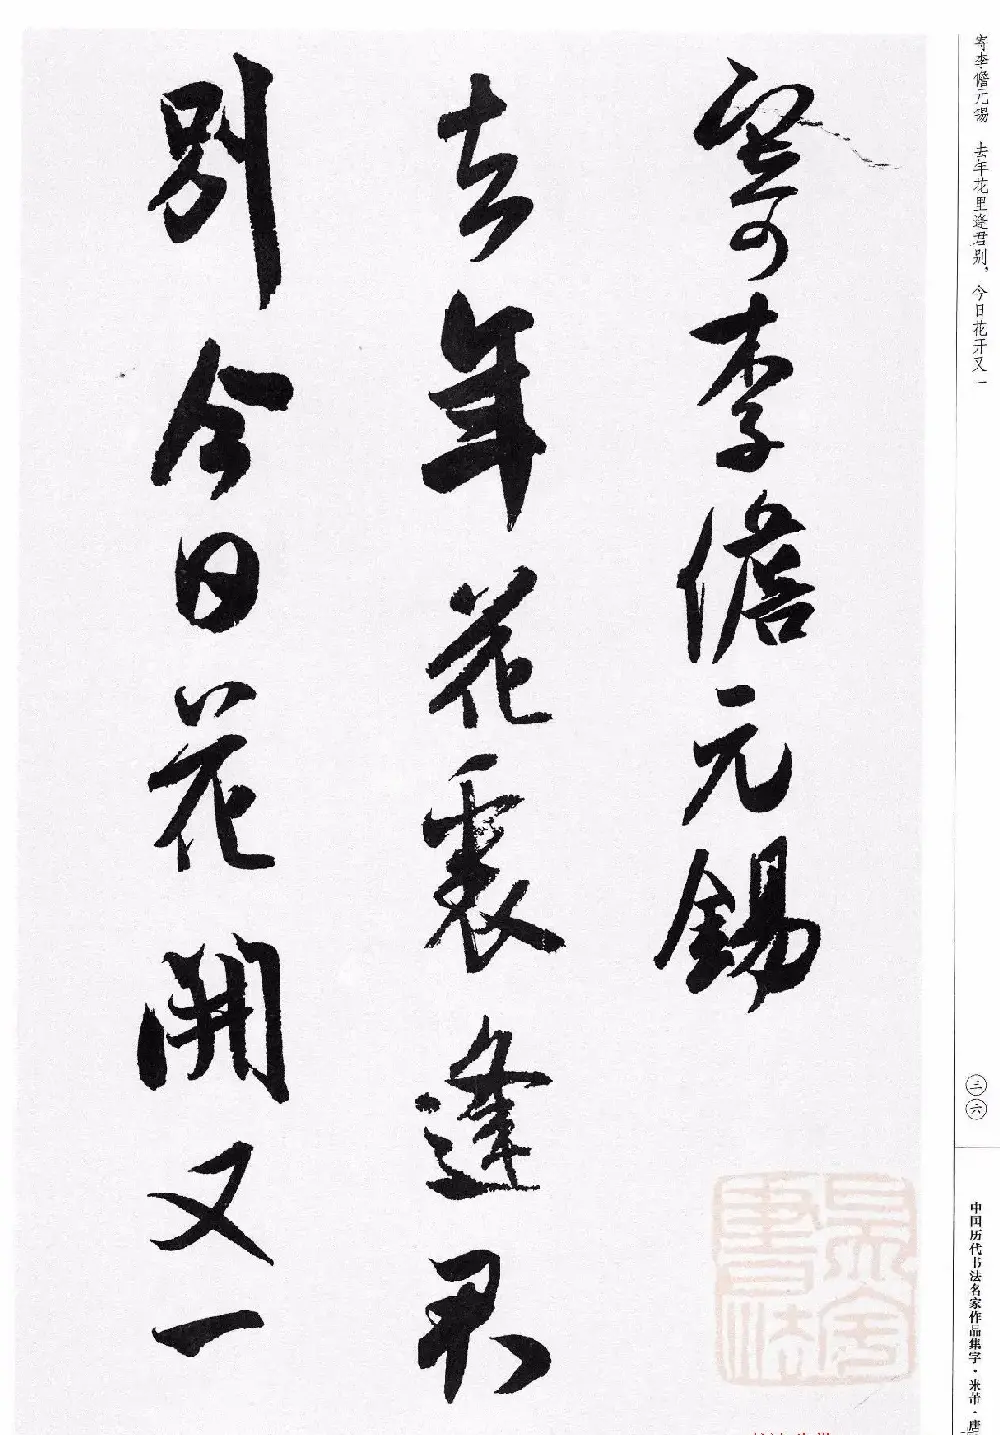 寄李儋元锡 去年花里逢君别，今日花开又一
寄李儋元錫
去年花裏逢君
別今日花開又一
三六
中国历代书法名家作品集字·米芾·唐